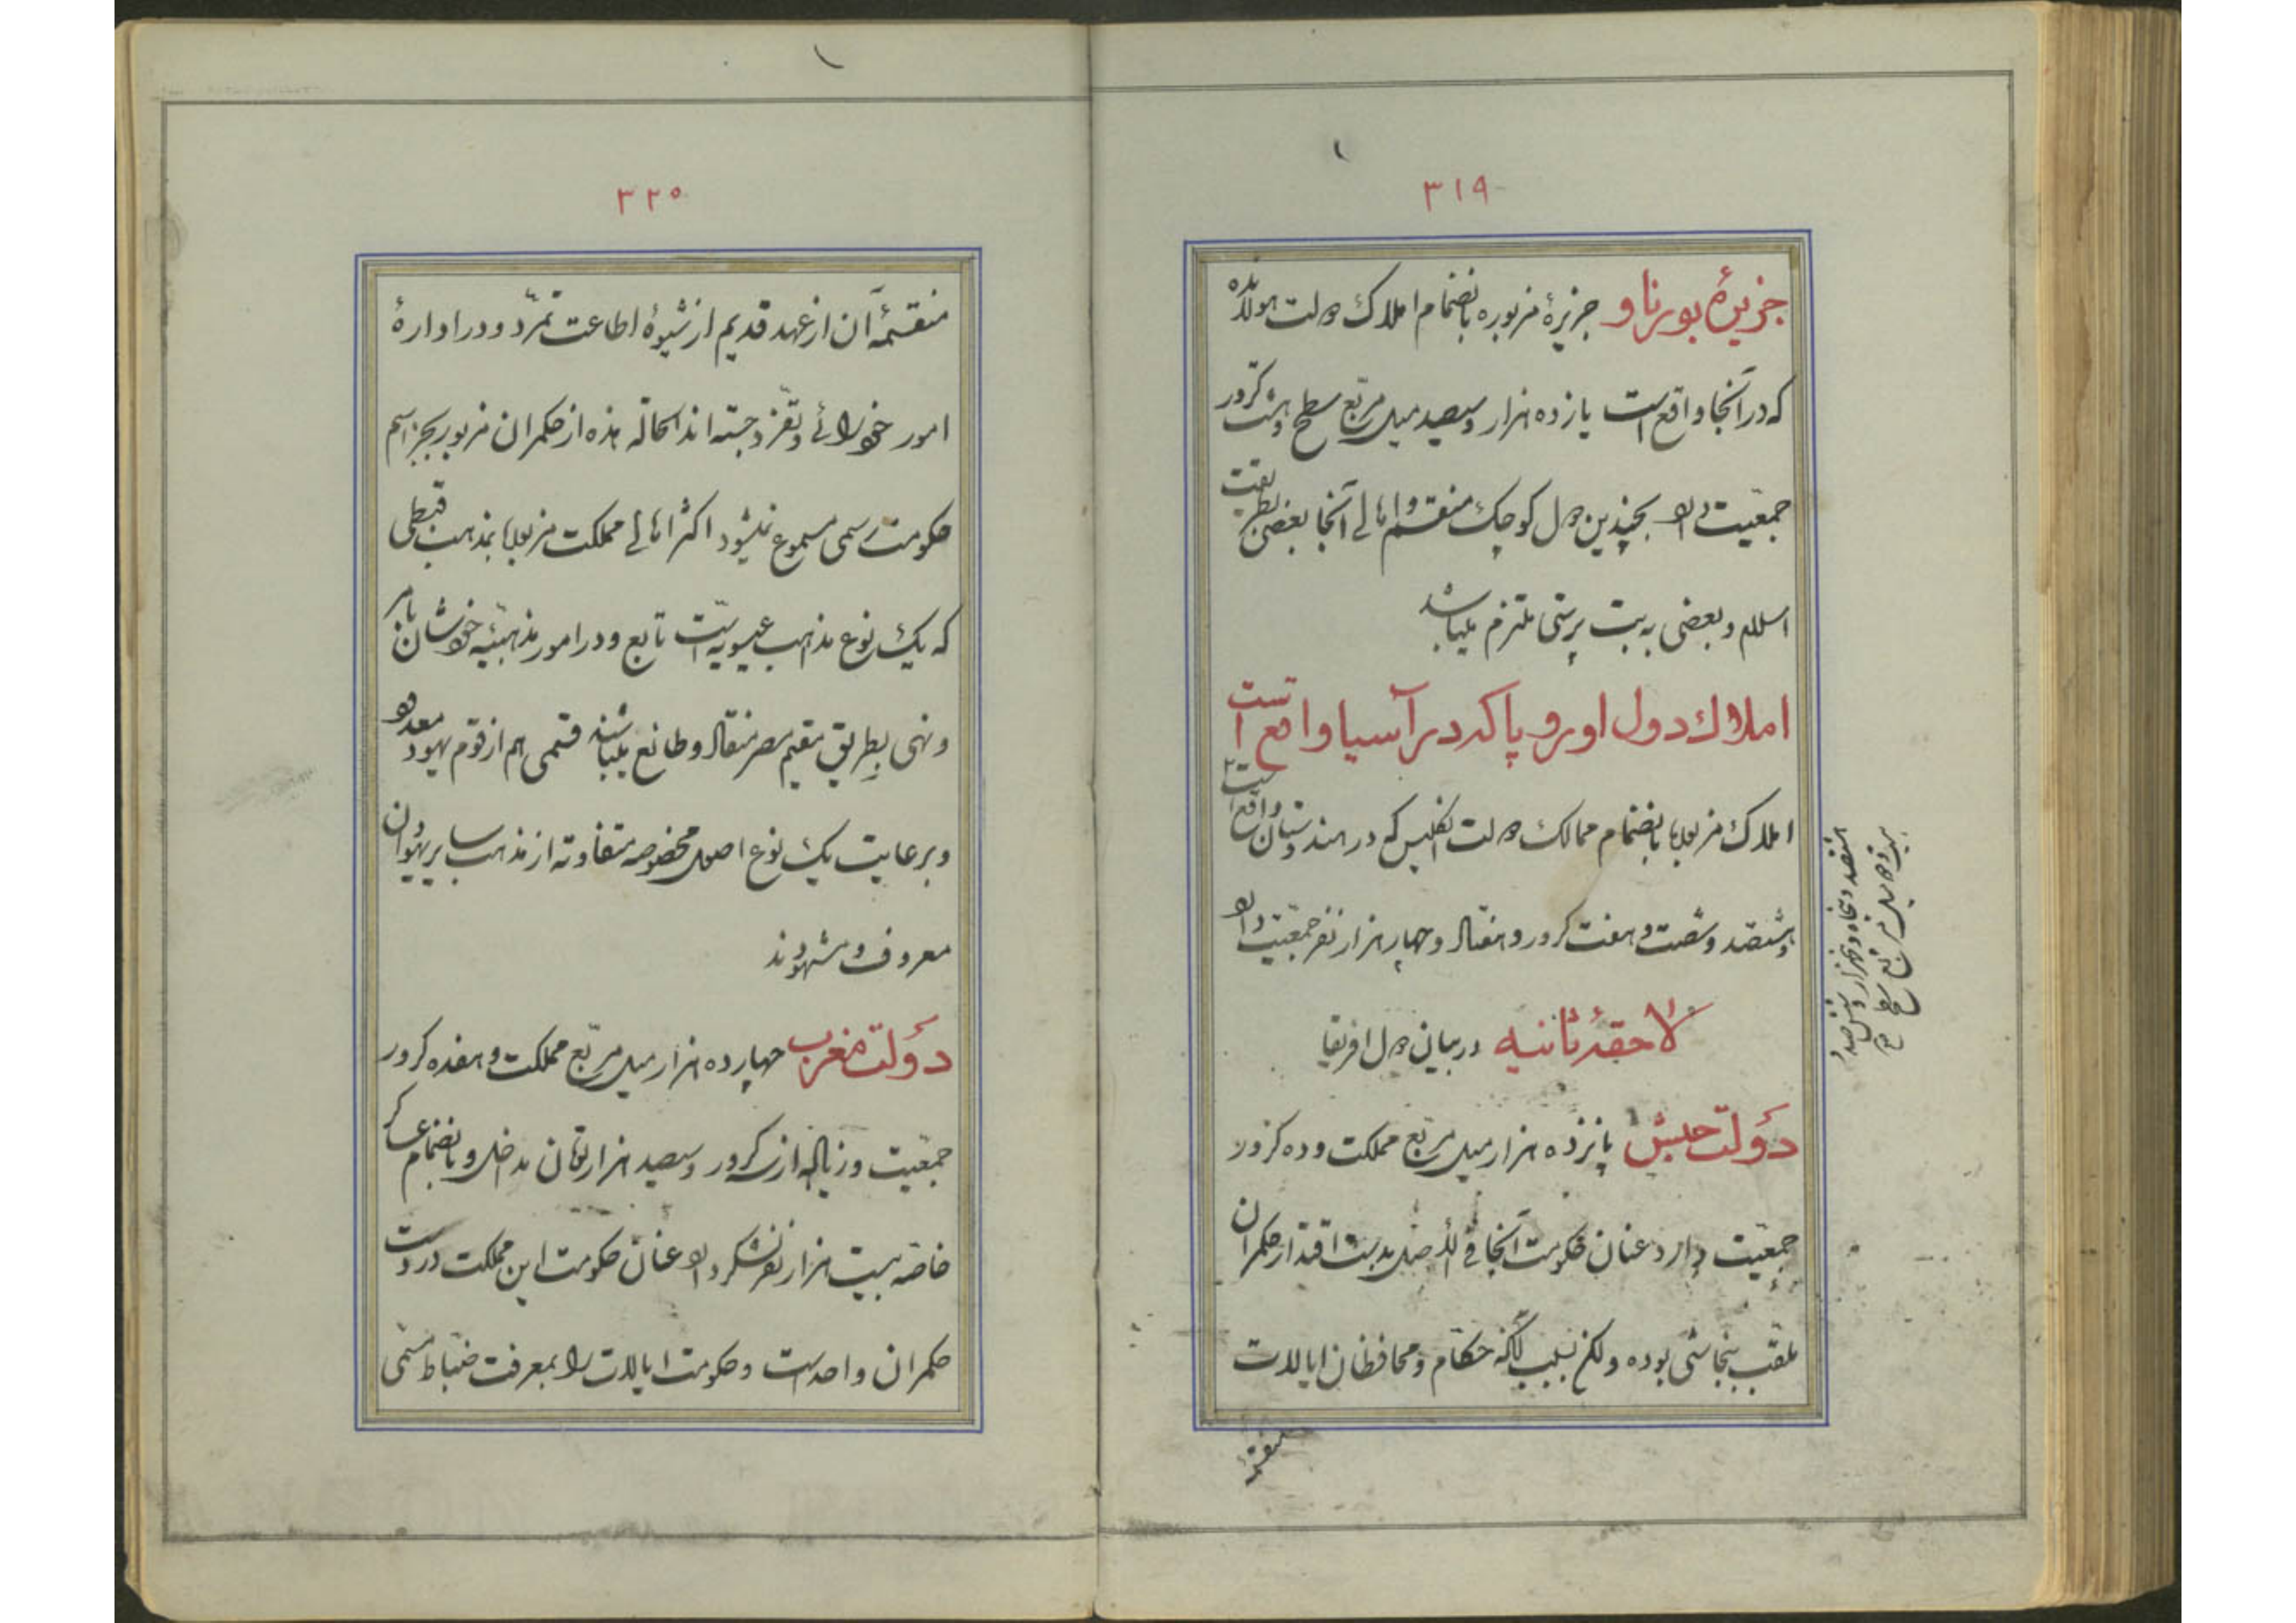 ۳۱۹
جزیرهٔ بورناو جزیرهٔ مزبوره بانضمام املاک دولت هولانده
که در آنجا واقع است یازده هزار و سیصد میل مربّع سطح و هشت کرور
جمعیّت دارد بچندین دول کوچک منقسم و اهالی آنجا بعضی بطریقت
اسلام و بعضی به بت پرستی ملتزم میباشد
املاک دول اوروپا که در آسیا واقع است
املاک مزبوره بانضمام ممالک دولت انگلیس که در هندوستان واقع است
و شصت و هفت کرور و هفتاد و چهار هزار نفر جمعیّت دارد
لاحقهٔ ثانیه در بیان دول افریقا
دولت حبش پانزده هزار میل مربّع مملکت و ده کرور
جمعیّت دارد عنان حکومت آنجا فی الأصل بدست اقتدار حکمران
ملقّب بنجاشی بوده ولکن بسبب آنکه حکّام و محافظان ایالات
منقسمه
میل مربّع سطح
۳۲۰
منقسمهٔ آن از عهد قدیم از شیوهٔ اطاعت تمرّد و در ادارهٔ
امور خودرائی و تفرّد جسته‌اند الحالة هذه از حکمران مزبور بجز اسم
حکومت رسمی مسموع نمیشود اکثر اهالی مملکت مزبوره بمذهب قبطی
که یک نوع مذاهب عیسویه است تابع و در امور مذهبیّه خودشان بامر
و نهی بطریق مقیم مصر منقاد و طائع میباشند قسمی هم از قوم یهود معدود
و برعایت یک نوع اصول مخصوصه متفاوته از مذهب سایر یهودان
معروف و مشهورند
دولت مغرب چهارده هزار میل مربّع مملکت و هفده کرور
جمعیّت و زیاده از کرور و سیصد هزار تومان مداخل و بانضمام عساکر
خاصّه بیست هزار نفر لشکر دارد عنان حکومت این مملکت در دست
حکمران واحد است و حکومت ایالات را بمعرفت ضبّاط مسمّی